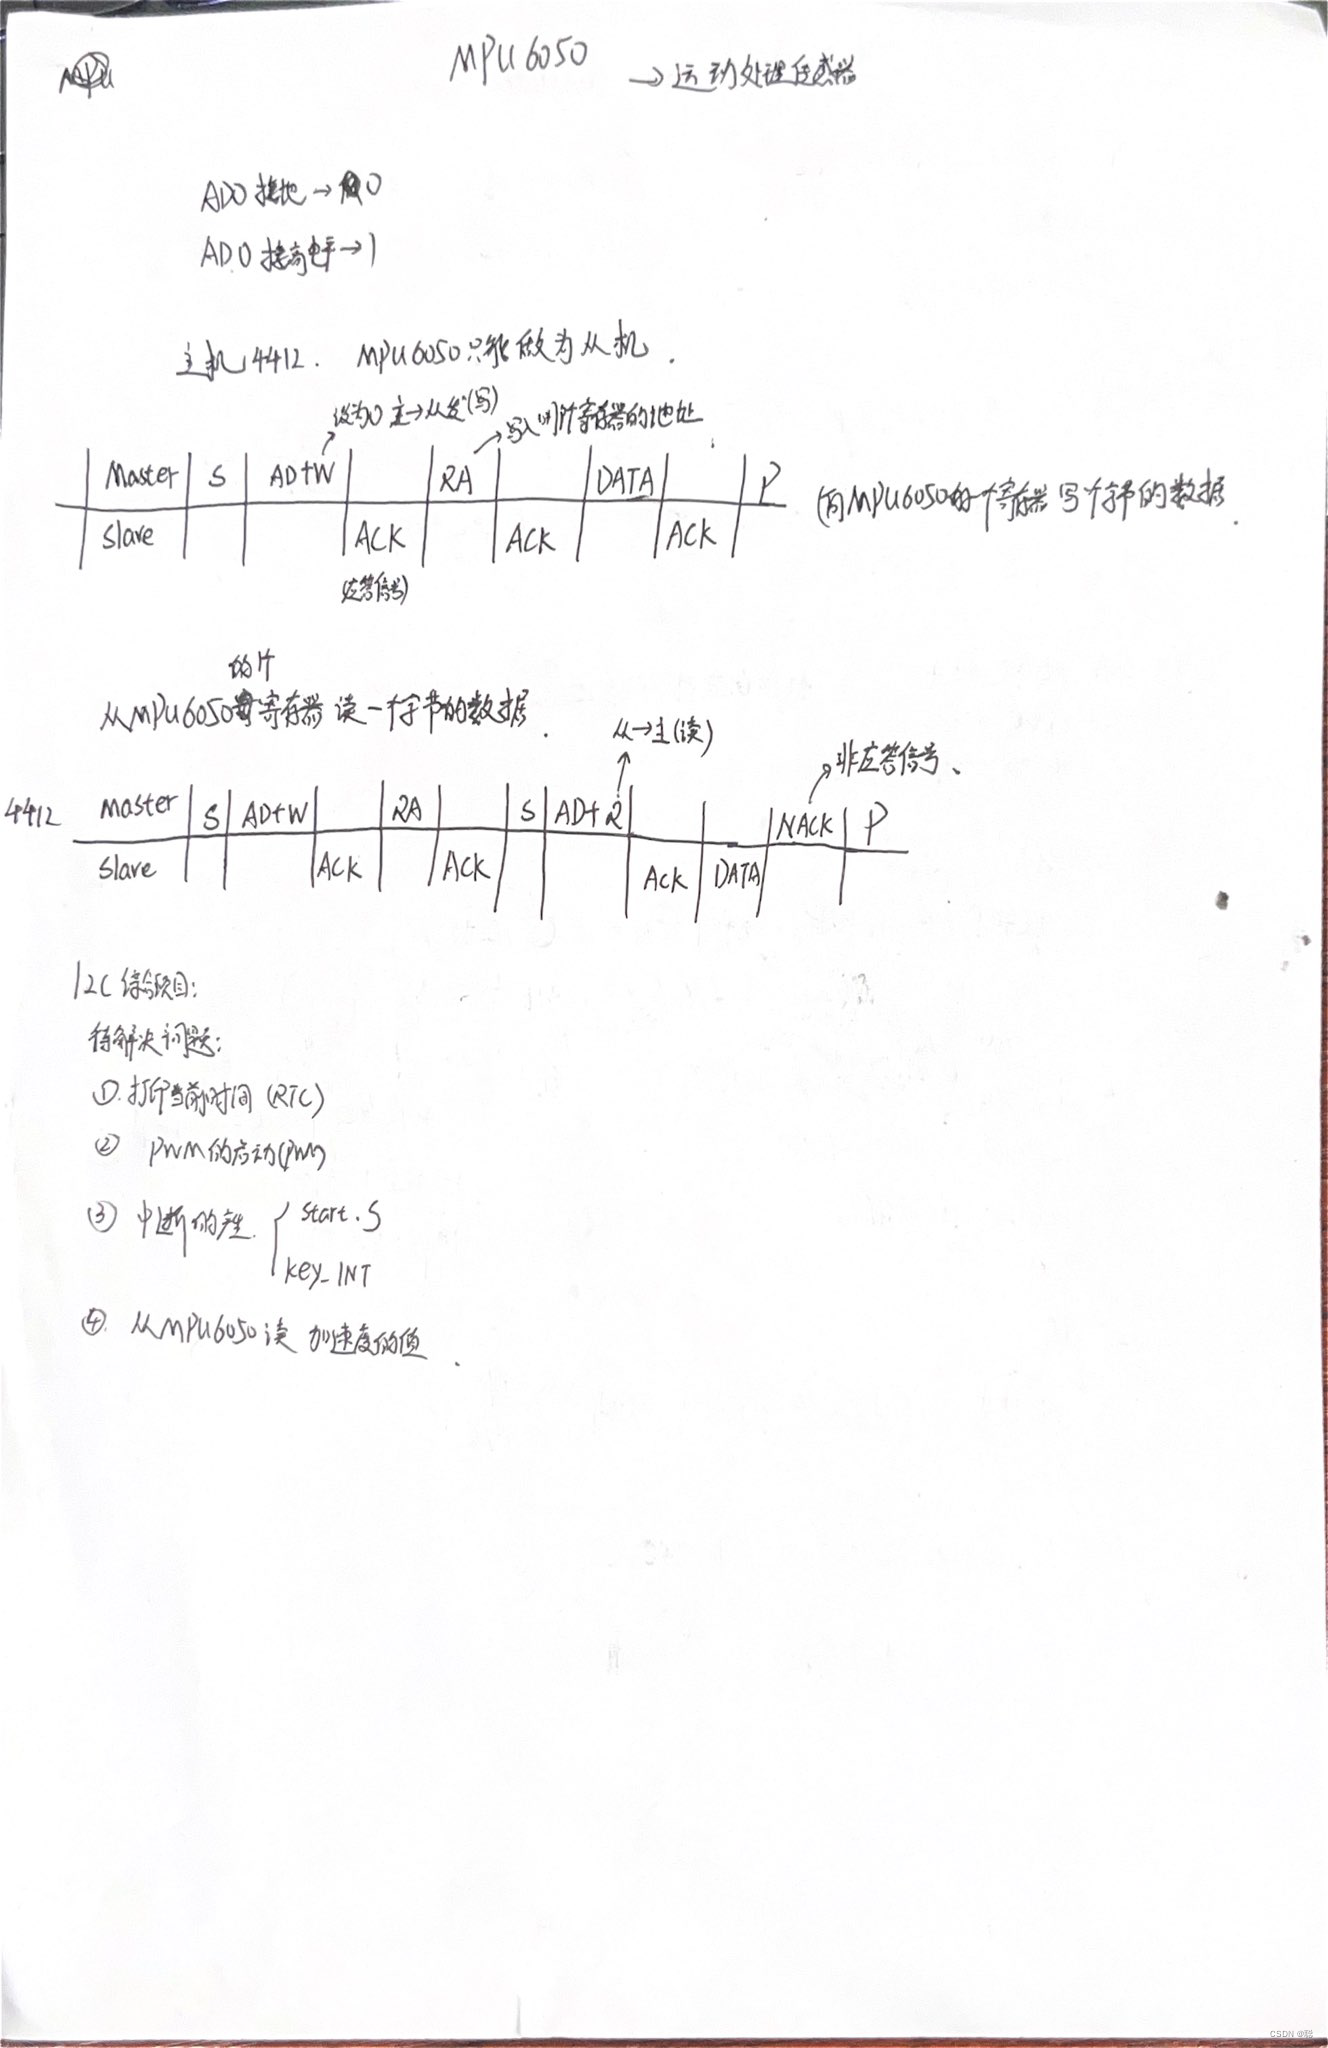 MPU6050 →运动处理传感器
AD0 接地→0
AD0 接高电平→1
主机4412. MPU6050只能做为从机.
设为0 主→从发(写) 写入哪个寄存器的地址
Master S AD+W RA DATA P (向MPU6050的一个寄存器写一个字节的数据.
Slave ACK ACK ACK
(应答信号)
的1个
从MPU6050寄存器读一个字节的数据.
从→主(读)
非应答信号、
4412 Master S AD+W RA S AD+R NACK P
Slave ACK ACK ACK DATA
I2C综合项目:
待解决问题:
①.打印当前时间 (RTC)
② PWM的启动(PWM)
③ 中断的产生. { Start.S
key_INT
④. 从MPU6050读 加速度的值.
CSDN @聪